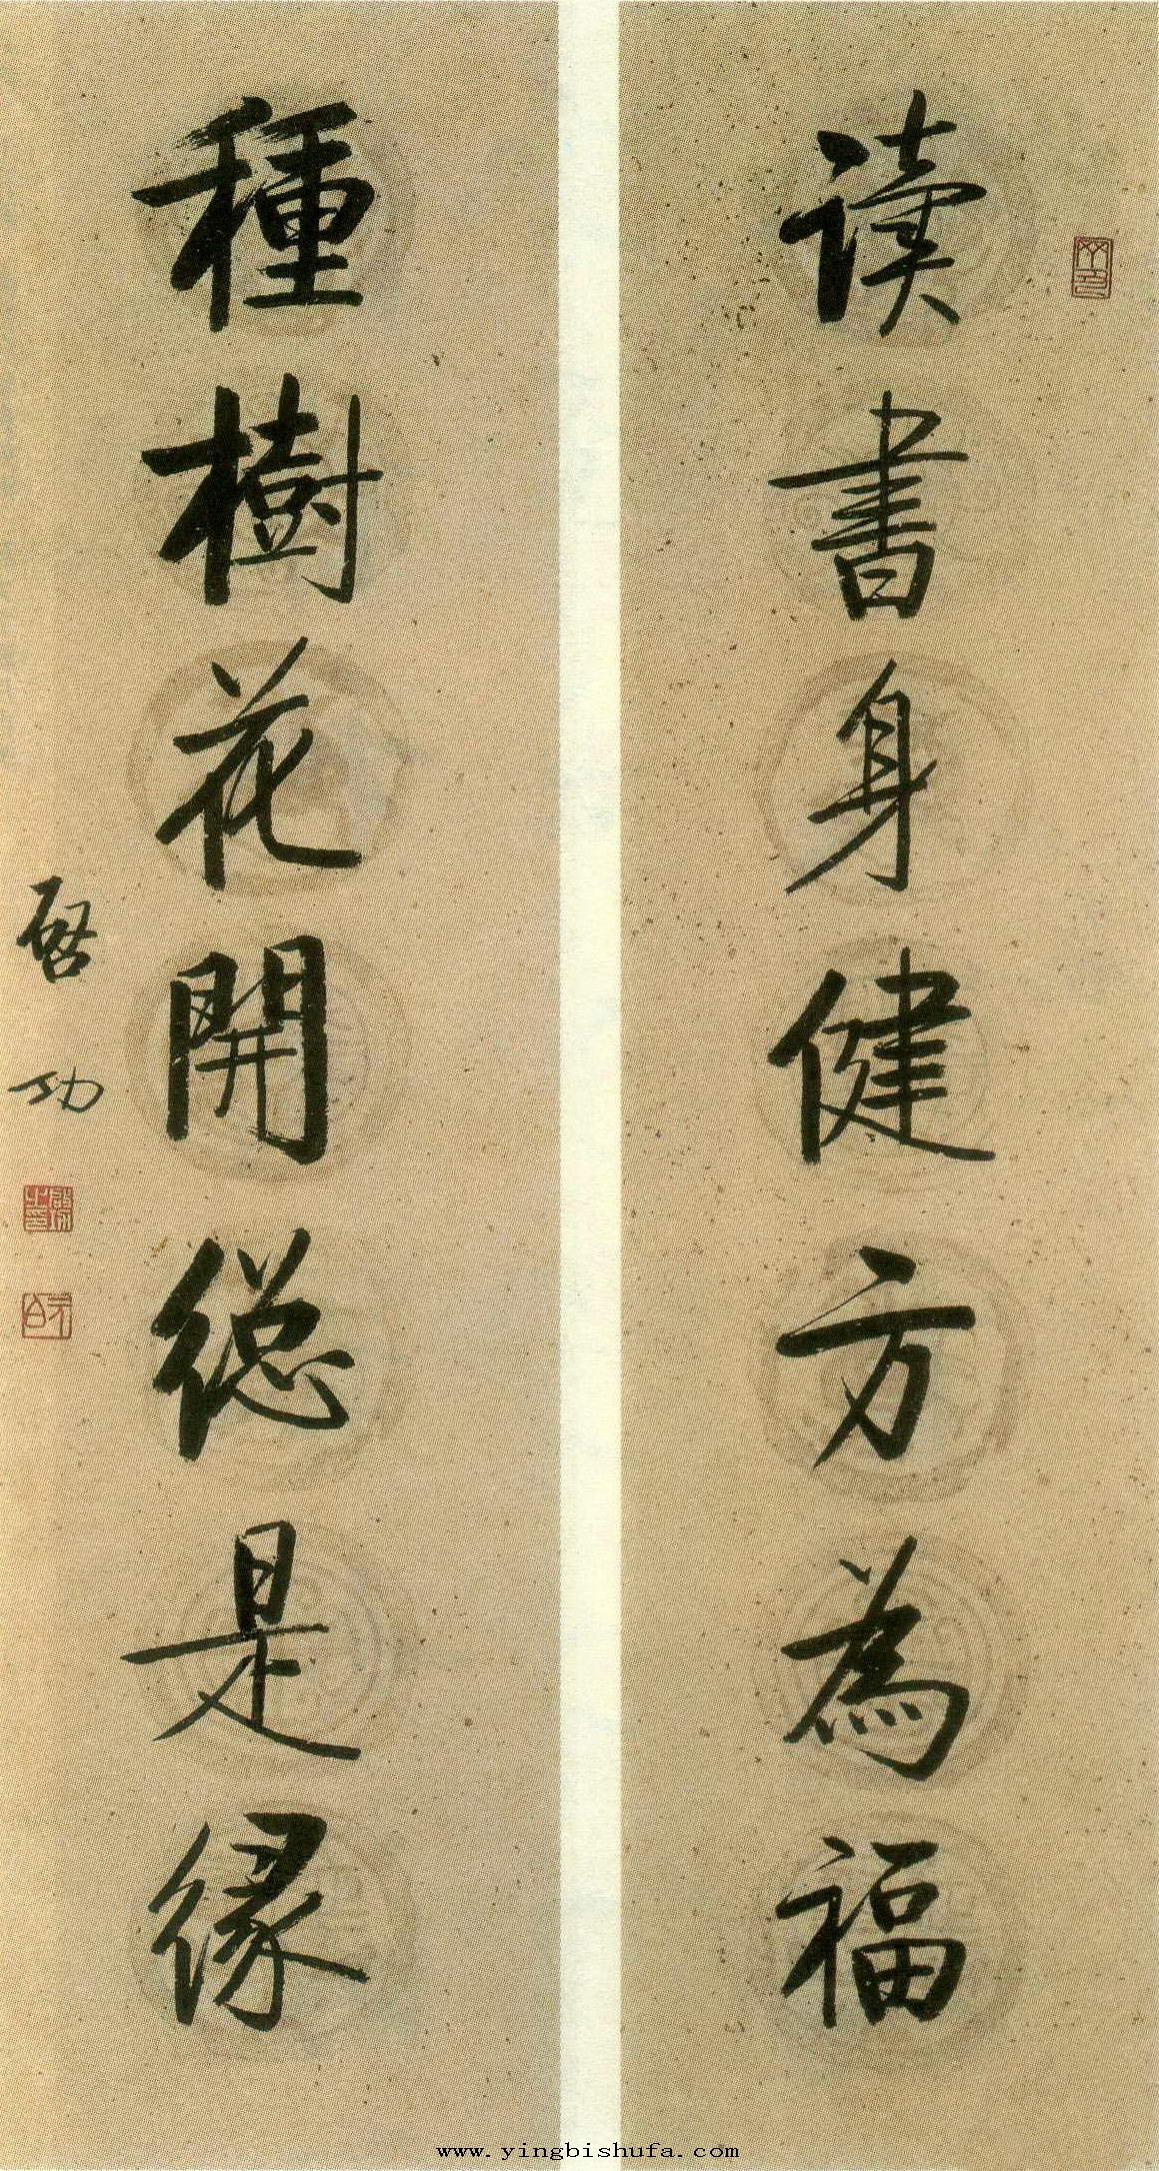 读書身健方為福
種樹花開總是緣
啓功
www.yingbishufa.com